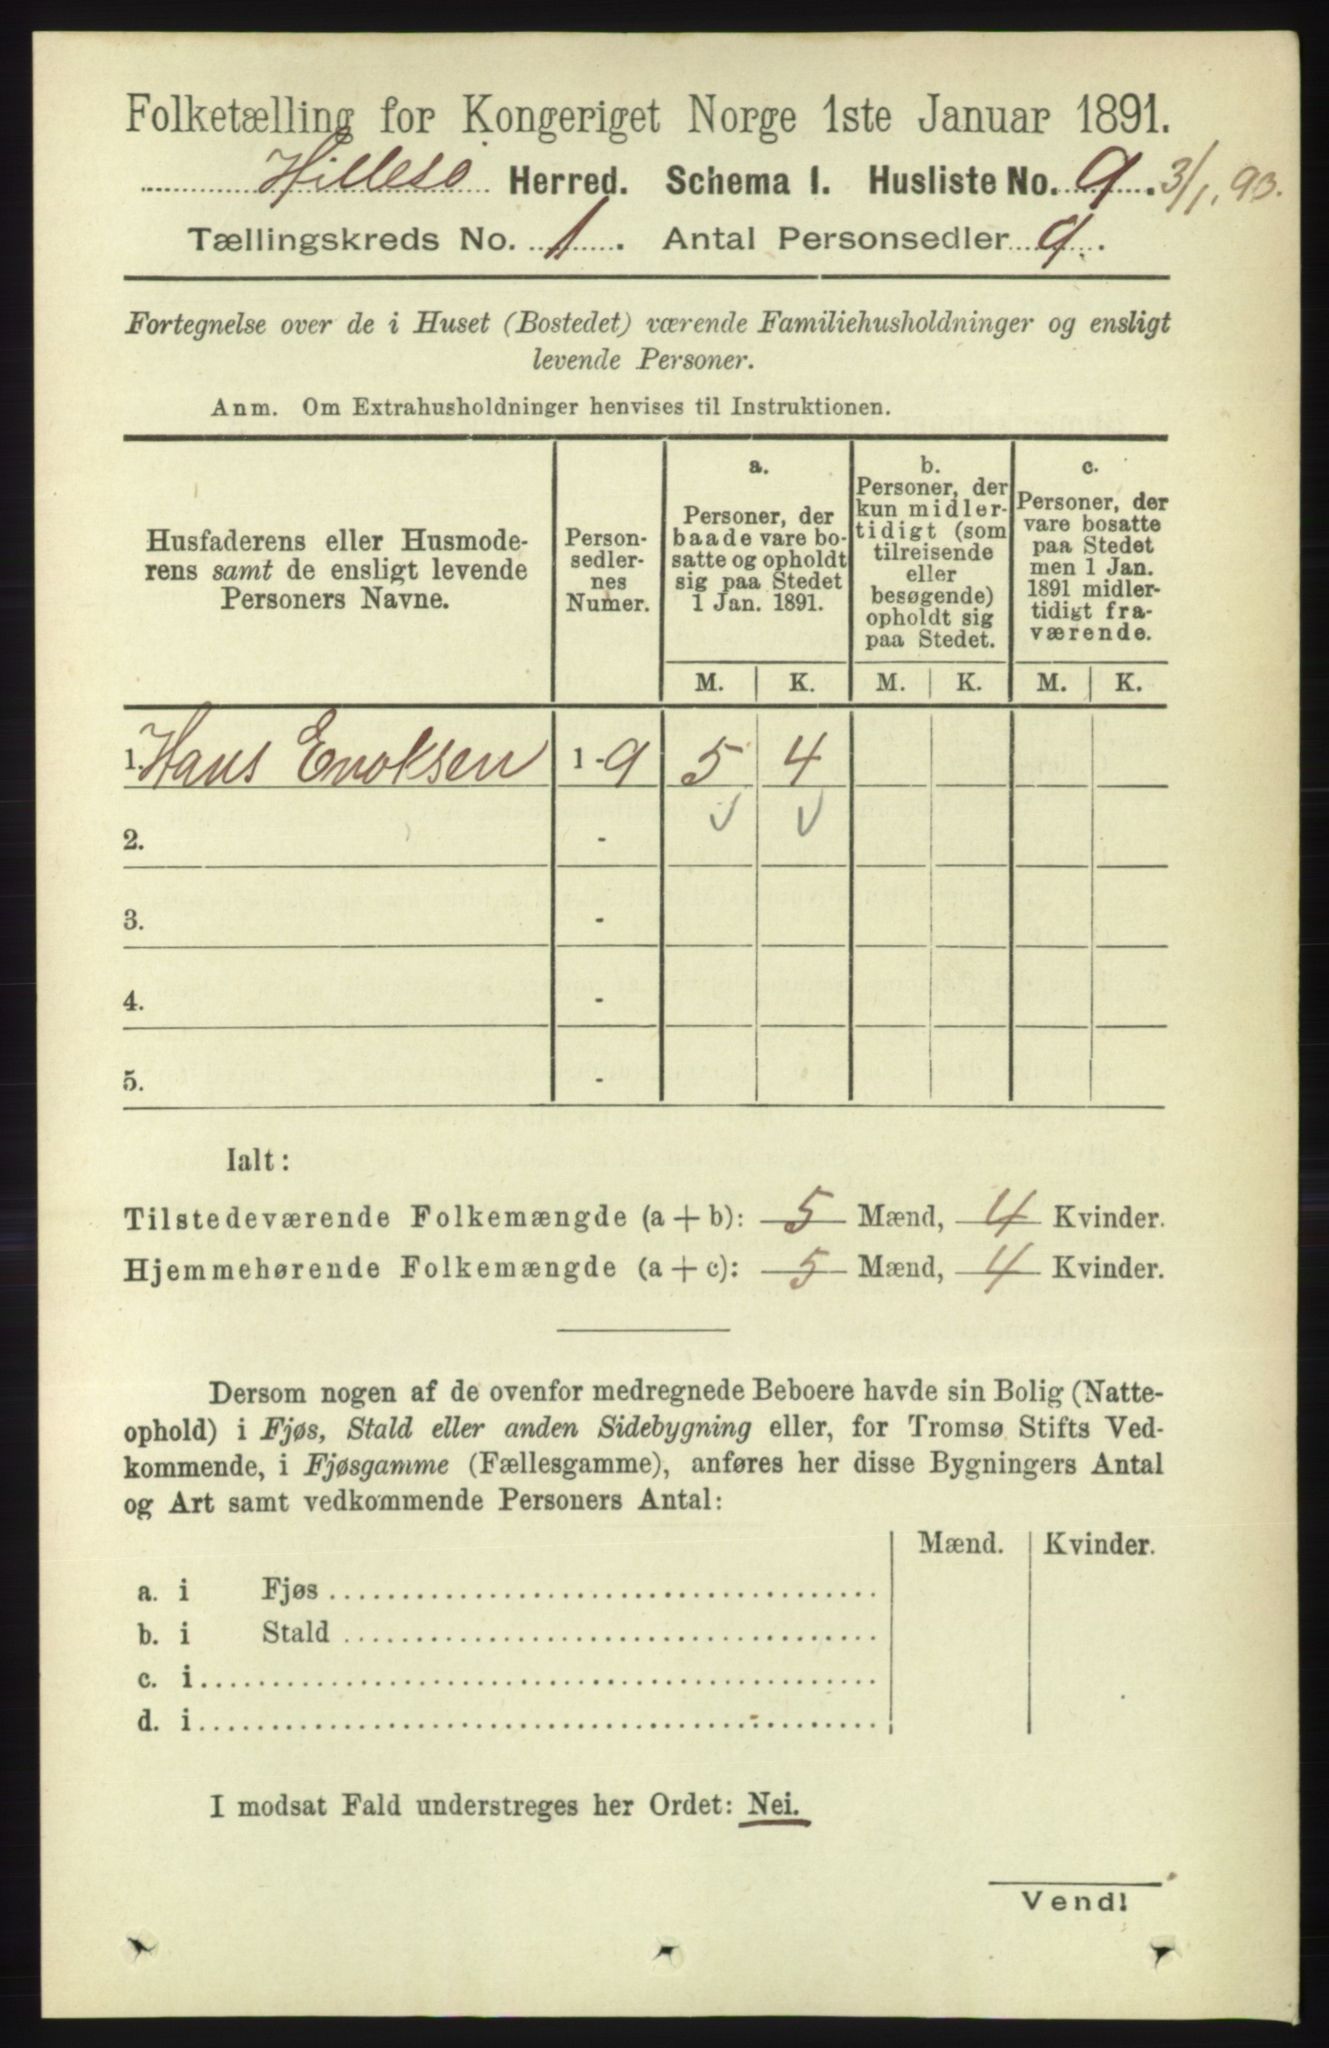 Folketælling for Kongeriget Norge 1ste Januar 1891.
Hillesø Herred. Schema I. Husliste No. 9. 3/1. 93.
Tællingskreds No. 1. Antal Personsedler 9.
Fortegnelse over de i Huset (Bostedet) værende Familiehusholdninger og ensligt
levende Personer.
Anm. Om Extrahusholdninger henvises til Instruktionen.
Husfaderens eller Husmode-
rens samt de ensligt levende
Personers Navne.
Person-
sedler-
nes
Numer.
a.
Personer, der
baade vare bo-
satte og opholdt
sig paa Stedet
1 Jan. 1891.
b.
Personer, der
kun midler-
tidigt (som
tilreisende
eller
besøgende)
opholdt sig
paa Stedet.
c.
Personer, der
vare bosatte
paa Stedet
men 1 Jan.
1891 midler-
tidigt fra-
værende.
M. K. M. K. M. K.
1. Hans Enoksen 1 - 9 5 4
2. -
3. -
4. -
5. -
Ialt:
Tilstedeværende Folkemængde (a + b): 5 Mænd, 4 Kvinder.
Hjemmehørende Folkemængde (a + c): 5 Mænd, 4 Kvinder.
Dersom nogen af de ovenfor medregnede Beboere havde sin Bolig (Natte-
ophold) i Fjøs, Stald eller anden Sidebygning eller, for Tromsø Stifts Ved-
kommende, i Fjøsgamme (Fællesgamme), anføres her disse Bygningers Antal
og Art samt vedkommende Personers Antal:
Mænd. Kvinder.
a. i Fjøs
b. i Stald
c. i
d. i
I modsat Fald understreges her Ordet: Nei.
Vend!